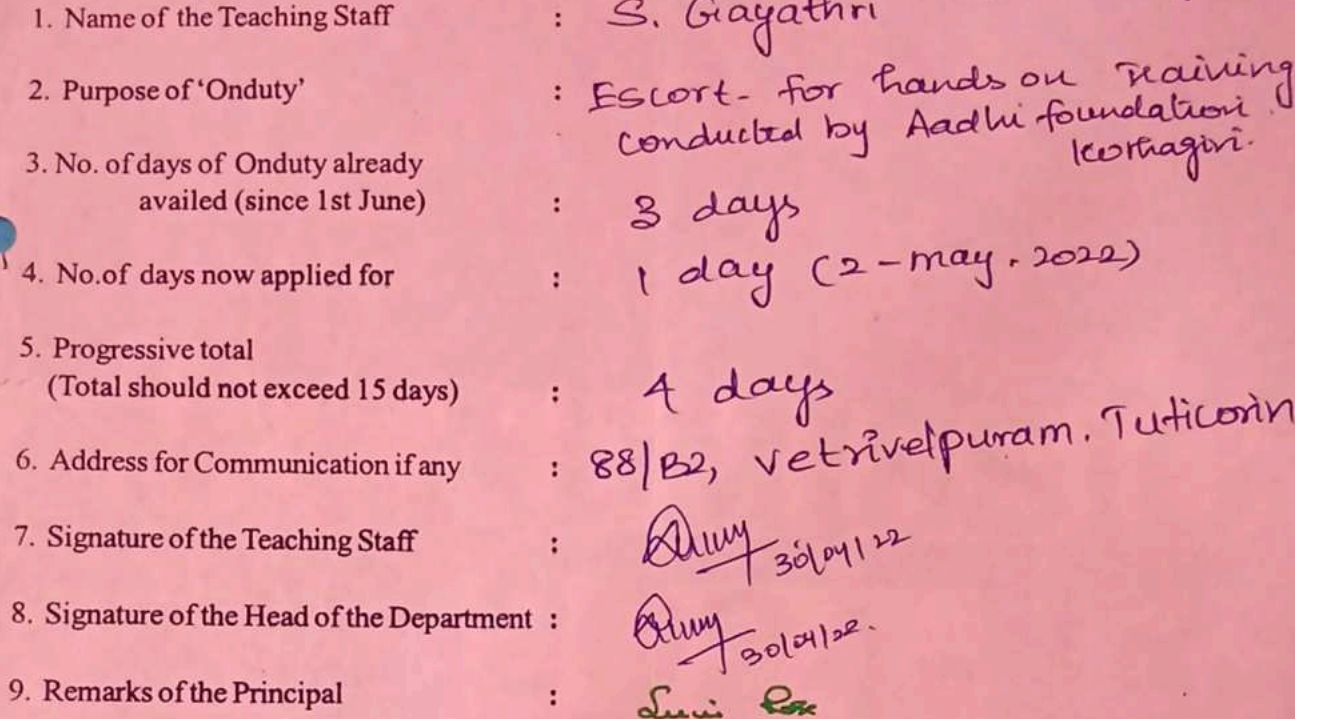 1. Name of the Teaching Staff : S. Gayathri
2. Purpose of 'Onduty' : Escort - for hands on Training
conducted by Aadhi foundation.
3. No. of days of Onduty already
availed (since 1st June) : 3 days
4. No.of days now applied for : 1 day (2-may.2022)
5. Progressive total
(Total should not exceed 15 days) : 4 days
6. Address for Communication if any : 88/B2, Vetrivelpuram. Tuticorin
7. Signature of the Teaching Staff : 30/04/22
8. Signature of the Head of the Department : 30/04/22.
9. Remarks of the Principal :